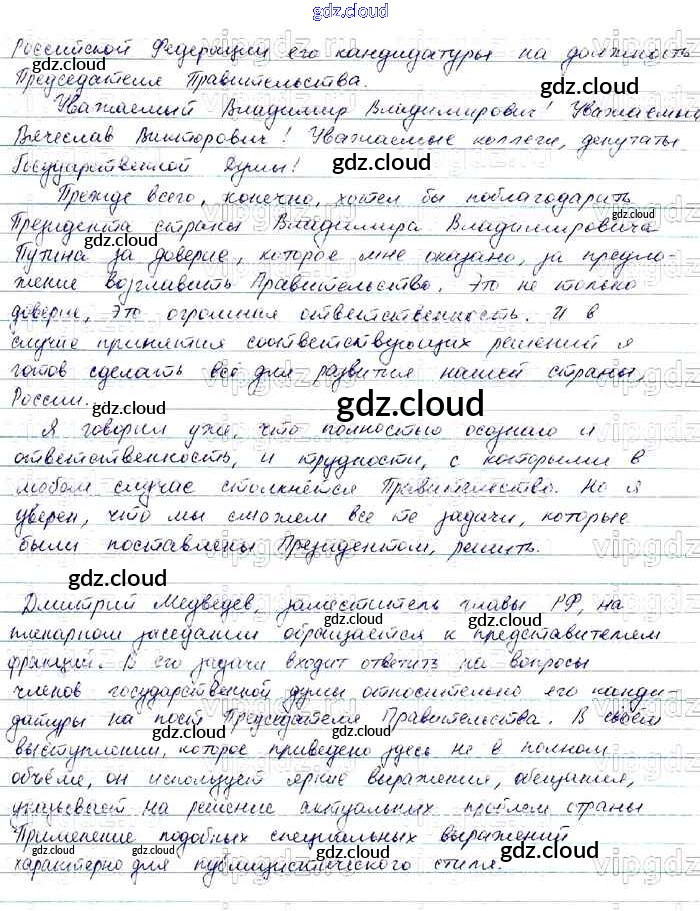 gdz.cloud
Российской Федерации его кандидатуры на должность
Председателя Правительства.
Уважаемый Владимир Владимирович! Уважаемый
Вячеслав Викторович! Уважаемые коллеги, депутаты
Государственной Думы!
Прежде всего, конечно, хотел бы поблагодарить
Президента страны Владимира Владимировича
Путина за доверие, которое мне оказано, за предло-
жение возглавить Правительство. Это не только
доверие, это огромная ответственность. И в
случае принятия соответствующих решений я
готов сделать всё для развития нашей страны,
России.
Я говорил уже, что полностью осознаю и
ответственность, и трудности, с которыми в
любом случае столкнётся Правительство. Но я
уверен, что мы сможем все те задачи, которые
были поставлены Президентом, решить.
Дмитрий Медведев, заместитель главы РФ, на
пленарном заседании обращается к представителям
фракций. В его задачи входит ответить на вопросы
членов государственной думы относительно его канди-
датуры на пост Председателя Правительства. В своём
выступлении, которое приведено здесь не в полном
объёме, он использует яркие выражения, обещания,
указывает на решение актуальных проблем страны
Применение подобных специальных выражений
характерно для публицистического стиля.